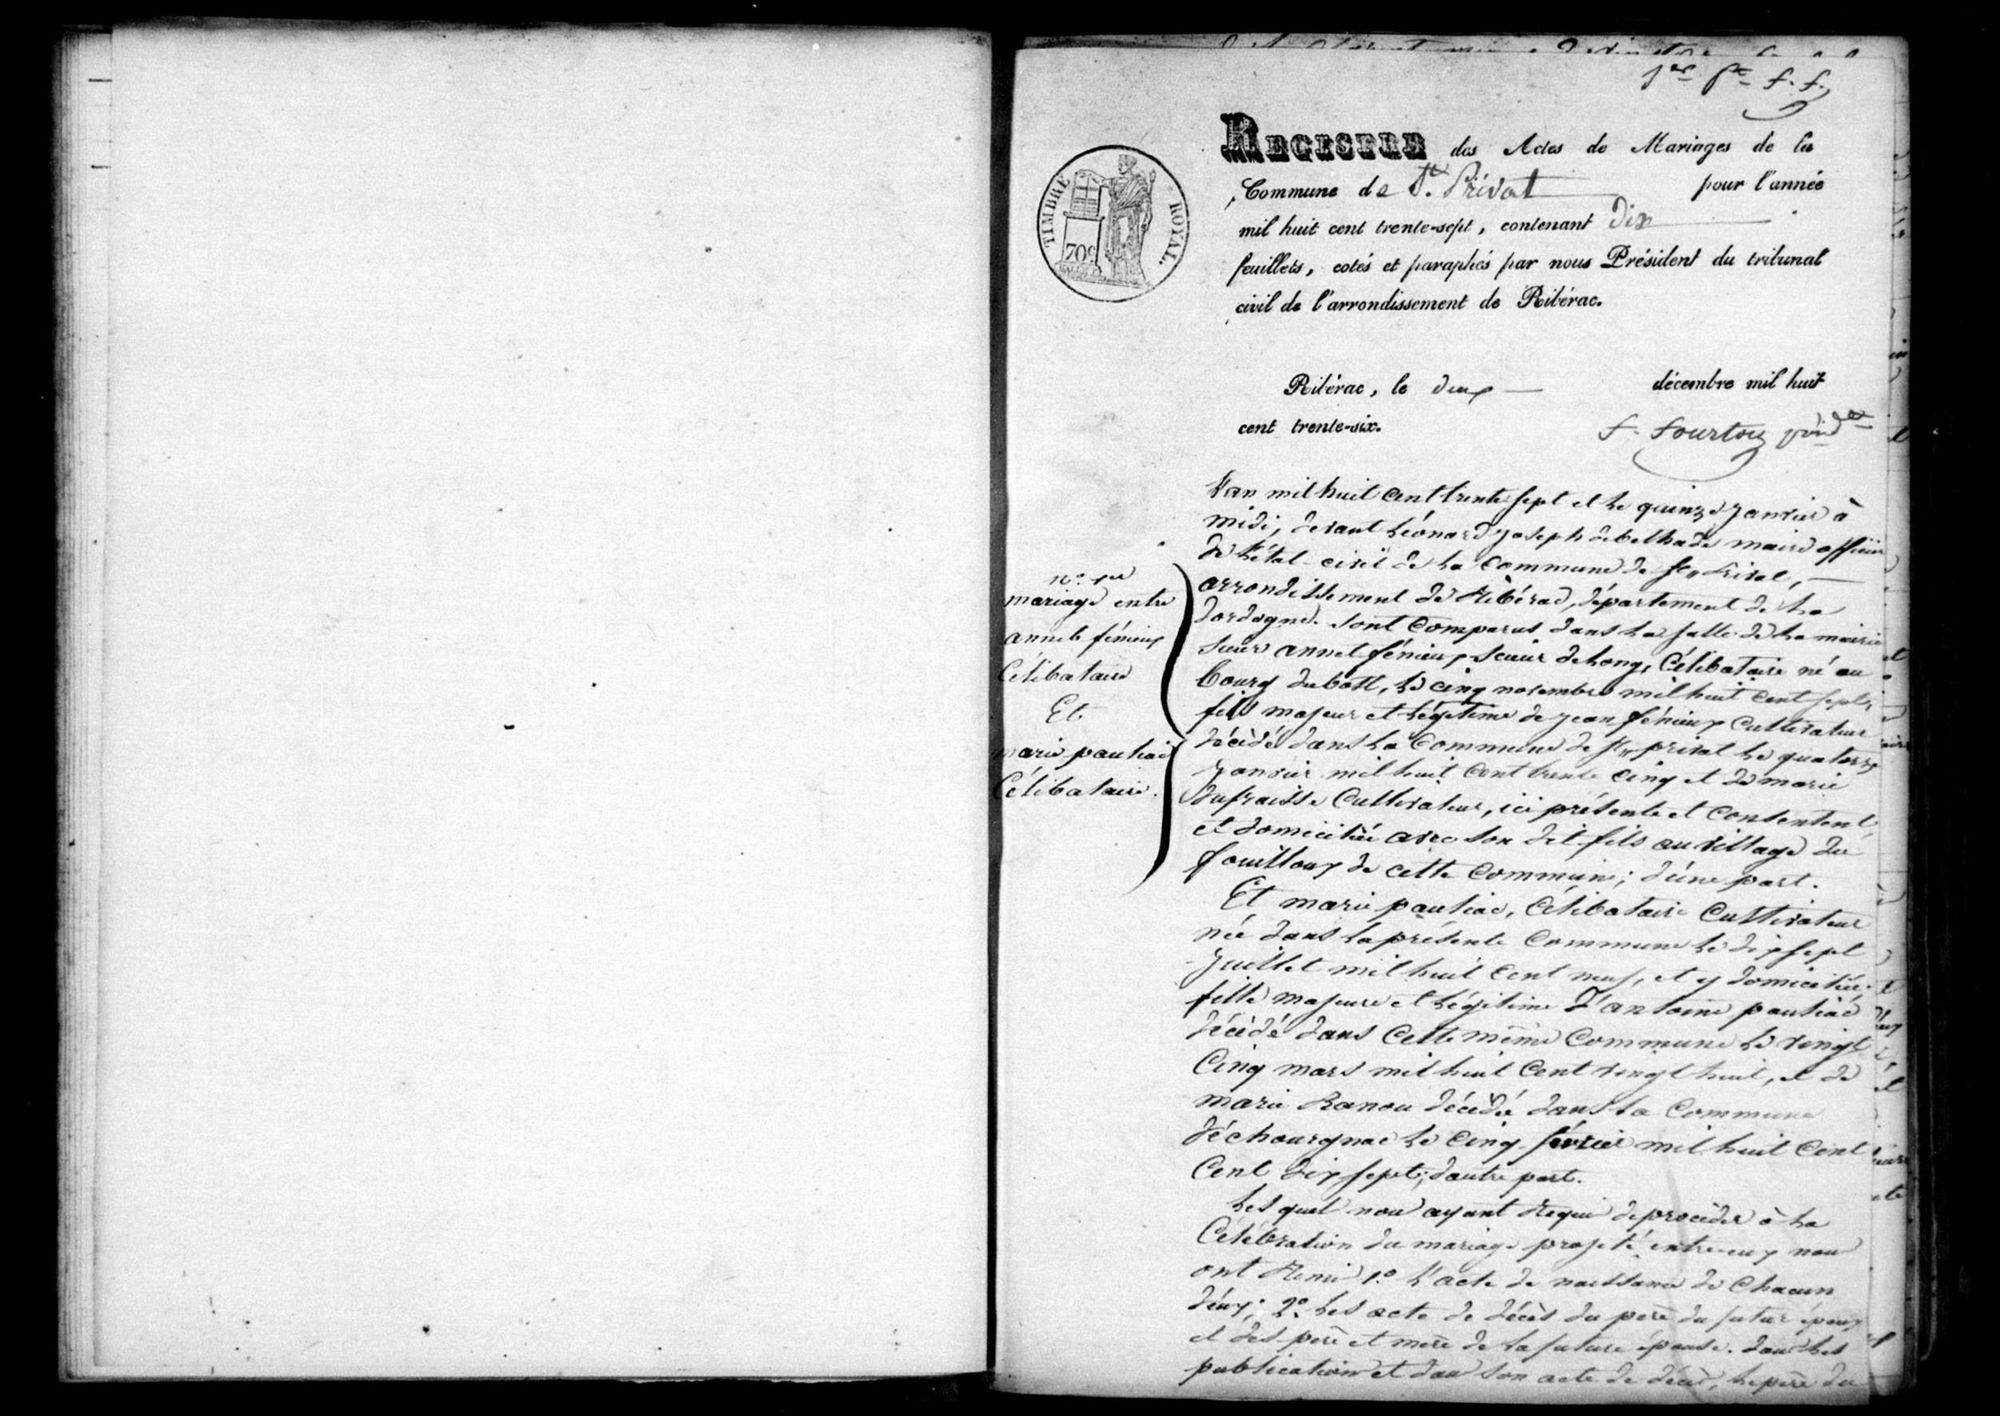 1er ft f. f.
REGISTRE des Actes de Mariages de la
Commune de St. Privat pour l'année
mil huit cent trente-sept, contenant Dix
feuillets, cotés et paraphés par nous Président du tribunal
civil de l'arrondissement de Ribérac.
TIMBRE ROYAL.
70c
Ribérac, le deux décembre mil huit
cent trente-six.
F. Fourtou
n° 1er
mariage entre
annet fénieux
Célibataire
Et
marie pauliac
Célibataire.
L'an mil huit cent trente sept et le quinze janvier à
midi, devant Léonard joseph debelhade maire officier
de l'état civil de la Commune de St. Privat,
arrondissement de Ribérac, département de la
dordogne. sont Comparus dans la salle de la mairie
sieur annet fénieux scieur de long, Célibataire né au
bourg du bost, le cinq novembre mil huit cent sept,
fils majeur et légitime de jean fénieux cultivateur
décédé dans la Commune de St. privat le quatorze
janvier mil huit cent trente cinq et de marie
dufraisse Cultivateur, ici présente et consentent
et domiciliée avec son dit fils au village du
fouilloux de cette Commune; d'une part.
Et marie pauliac, Célibataire Cultivateur
née dans la présente Commune le dix sept
juillet mil huit cent neuf, et y domiciliée.
fille majeure et légitime d'antoine pauliac
décédé dans Cette même Commune le vingt
Cinq mars mil huit Cent vingt huit, et de
marie Ranou décédé dans la Commune
déchourgnac le cinq février mil huit Cent
Cent dix sept; d'autre part.
Les quel nou ayant Requi de procéder à la
Célébration du mariage projeté entre eux nou
ont Remi 1.° l'acte de naissance de Chacun
deux; 2.° Les acte de décès du père du futur époux
et des père et mère de la future épouse. dans les
publication et dan son acte de décès, le père du